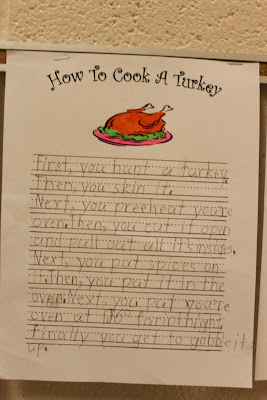 How To Cook A Turkey
First, you hunt a turkey.
Then, you skin it.
Next, you preheat you're
oven. Then, you cut it open
and pull out all its insides.
Next, you put spices on
it. Then, you put it in the
oven. Next, you put you're
oven at farinthight
Finally you get to gobble it
up.